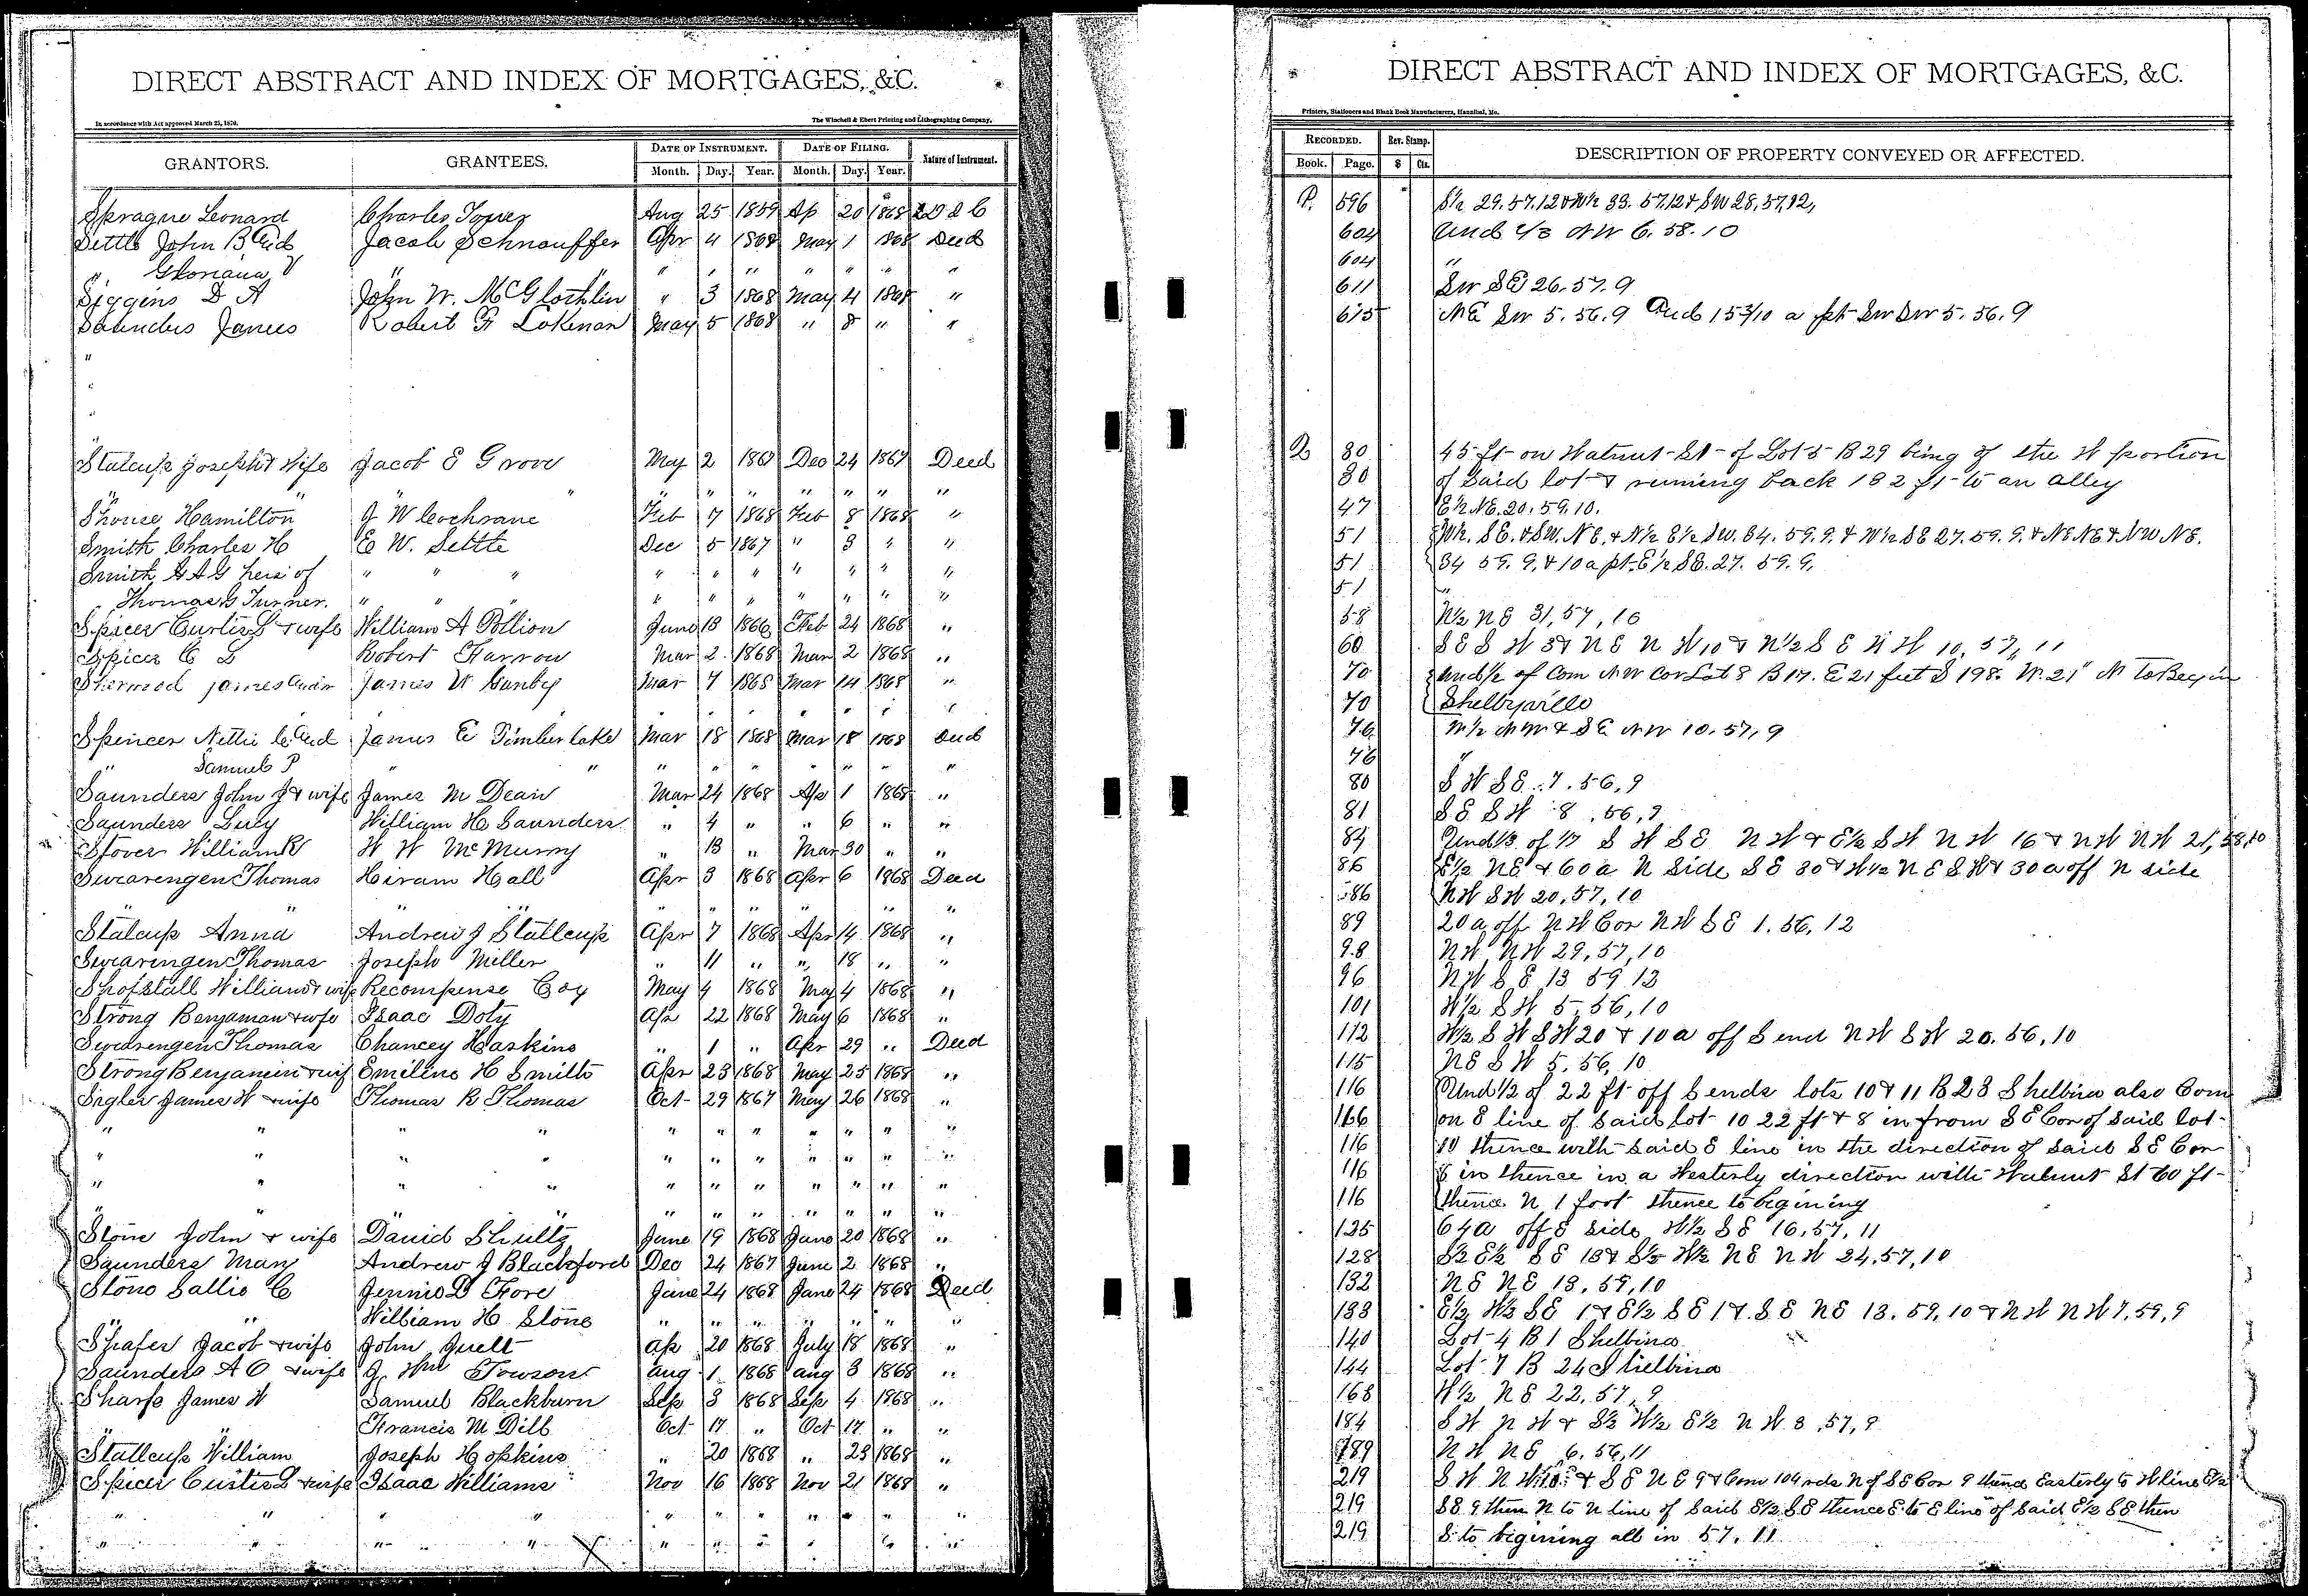 DIRECT ABSTRACT AND INDEX OF MORTGAGES, &C.
In accordance with Act approved March 25, 1870.
The Winchell & Ebert Printing and Lithographing Company,
GRANTORS. GRANTEES. DATE OF INSTRUMENT. DATE OF FILING. Nature of Instrument.
Month. Day. Year. Month. Day. Year.
Sprague Leonard Charles Aug 25 1859 Ap 20 1868
Settle John B And Jacob Schnauffer Apr 4 1868 May 1 1868 Deed
" V " " " " " " " "
Siggins D A John W. McGlothlin " 3 1868 May 4 1868 "
Saunders James Robert F Lokenan May 5 1868 " 8 " "
"
"
"
Stalcup Joseph & Wife Jacob E Grove May 2 1867 Dec 24 1867 Deed
" " " " " " " " "
Shouse Hamilton J W Cochrane Feb 7 1868 Feb 8 1868 "
Smith Charles H E W. Settle Dec 5 1867 " 3 " "
Smith G A G heir of " " " " " " " " " "
Thomas Turner. " " " " " " " " " "
Spicer Curtis L & wife William A Pollion June 13 1866 Feb 24 1868 "
Spicer C L Robert Farrow Mar 2 1868 Mar 2 1868 "
Sherwood James James W Gunby Mar 7 1868 Mar 14 1868 "
" " " " " "
Spencer Nettie C And James E Timberlake Mar 18 1868 Mar 18 1868 Deed
" Samuel P " " " " " " " " "
Saunders John J & wife James M Dean Mar 24 1868 Ap 1 1868 "
Saunders Lucy William H Saunders " 4 " " 6 " "
Stover William R W W McMurry " 13 " Mar 30 " "
Swearengen Thomas Hiram Hall Apr 3 1868 Apr 6 1868 Deed
" " " " " " " " " "
Stalcup Anna Andrew J Stallcup Apr 7 1868 Apr 14 1868 "
Swearingen Thomas Joseph Miller " 11 " " 18 " "
Shofstall William & wife Recompense Coy May 4 1868 May 4 1868 "
Strong Benjaman & wife Isaac Doty Ap 22 1868 May 6 1868 "
Swearengen Thomas Chancey Haskins " 1 " Apr 29 " Deed
Strong Benjamin & wif Emiline H Smith Apr 23 1868 May 25 1868 "
Sigler James W & wife Thomas R Thomas Oct 29 1867 May 26 1868 "
" " " " " " " " " " "
" " " " " " " " " " "
" " " " " " " " " " "
" " " " " " " " " " "
Stone John & wife David Shultz June 19 1868 June 20 1868 "
Saunders Mary Andrew J Blackford Dec 24 1867 June 2 1868 "
Stone Sallie C Jennie D Fore June 24 1868 June 24 1868 Deed
" " William H Stone " " " " " " "
Shafer Jacob & wife John Quell Ap 20 1868 July 18 1868 "
Saunders A O & wife J. Wm Towson Aug 1 1868 Aug 3 1868 "
Sharp James W Samuel Blackburn Sep 3 1868 Sep 4 1868 "
Francis M Dill Oct 17 " Oct 17 " "
Stallcup William Joseph Hopkins " 20 1868 " 23 1868 "
Spicer Curtis L & wife Isaac Williams Nov 16 1868 Nov 21 1868 "
" " " " " " " " " " "
" " " " " " " " " " "
DIRECT ABSTRACT AND INDEX OF MORTGAGES, &C.
Printers, Stationers and Blank Book Manufacturers, Hannibal, Mo.
RECORDED. Rev. Stamp. DESCRIPTION OF PROPERTY CONVEYED OR AFFECTED.
Book. Page. $ Cts.
P. 596 S½ 29.57.12 & W½ 33.57.12 & SW 28,57,12,
604 Und ⅓ NW 6.58.10
604 "
611 SW SE 26.57.9
615 NE SW 5.56.9 And 15 3/10 a pt SW SW 5.56.9
Q 30 45 ft on Walnut St of Lot 5 B 29 being of the W portion
30 of Said lot & running back 182 ft to an alley
47 E½ NE. 20.59.10.
51 W½. SE. & SW. NE. & N½ E½ SW. 34.59.9. & W½ SE 27.59.9. & NE NE & NW NE.
51 34 59.9. & 10 a pt. E½ SE. 27.59.9.
51 "
58 W½ NE 31,57,10
60 SE SW 3 & NE NW 10 & N½ SE NW 10,57,11
70 Und ½ of Com NW Cor Lot 8 B 17. E 21 feet S 198. W. 21" N To Begin
70 Shelbyville
76 W½ NW & SE NW 10.57,9
76 "
80 SW SE 7.56,9
81 SE SW 8.56,9
84 Und ⅓ of 1/7 SW SE NW & E½ SW NW 16 & NW NW 21,58,10
86 E½ NE & 60 a N Side SE 30 & W½ NE SW & 30 a off N side
86 NW SW 20,57,10
89 20 a off NW Cor NW SE 1.56,12
98 NW NW 29,57,10
96 NW SE 13 59 12
101 W½ SW 5.56,10
112 W½ SW SW 20 & 10 a off S end NW SW 20.56,10
115 NE SW 5.56,10
116 Und ½ of 22 ft off S ends lots 10 & 11 B 23 Shelbina also Com
166 on E line of Said Lot 10 22 ft & 8 in from SE Cor of Said lot
116 10 thence with Said E line in the direction of Said SE Cor
116 8 in thence in a Westerly direction with Walnut St 60 ft
116 thence N 1 foot thence to begining
125 64 a off E side W½ SE 16,57,11
128 S½ E½ SE 13 & S½ W½ NE NW 24,57,10
132 NE NE 13,59,10
133 E½ W½ SE 1 & E½ SE 1 & SE NE 13.59,10 & NW NW 7,59,9
140 Lot 4 B 1 Shelbina
144 Lot 7 B 24 Shelbina
168 W½ NE 22,57,9
184 SW NW & S½ W½ E½ NW 3,57,9
189 NW NE 6.56,11
219 SW NW 10 & SE NE 9 & Com 104 rods N of SE Cor 9 thence Easterly to W line E½
219 SE 9 then N to N line of Said E½ SE thence E to E line of Said E½ SE then
219 S to begining all in 57,11